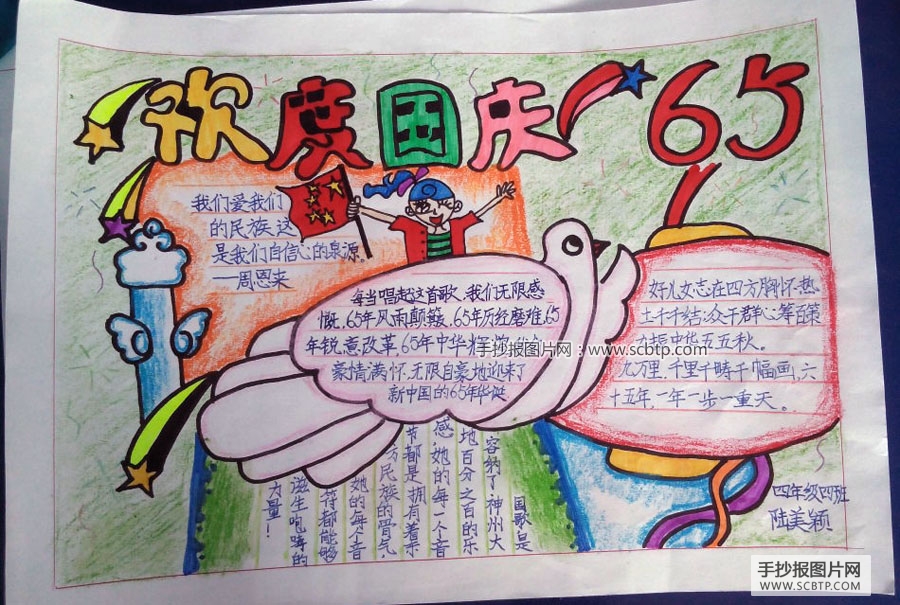 欢度国庆 65
我们爱我们
的民族,这
是我们自信心的泉源.
——周恩来
每当唱起这首歌,我们无限感
慨,65年风雨颠簸,65年历经磨难,65
年锐意改革,65年中华辉煌
豪情满怀,无限自豪地迎来了
新中国的65年华诞
好儿女志在四方胸怀.热
土千千结:众干群心筹百策
指中华五五秋。
九万里.千里千畴千幅画,六
十五年,一年一步一重天。
国歌是
容豹了神州大
地百分之百的乐
感,她的每一个音
节都是拥有着
万民族的骨气
她的每个音
符都能够
滋生咆哮的
力量!
四年级四班
陆美颖
手抄报图片网:www.scbtp.com
手抄报图片网
WWW.SCBTP.COM